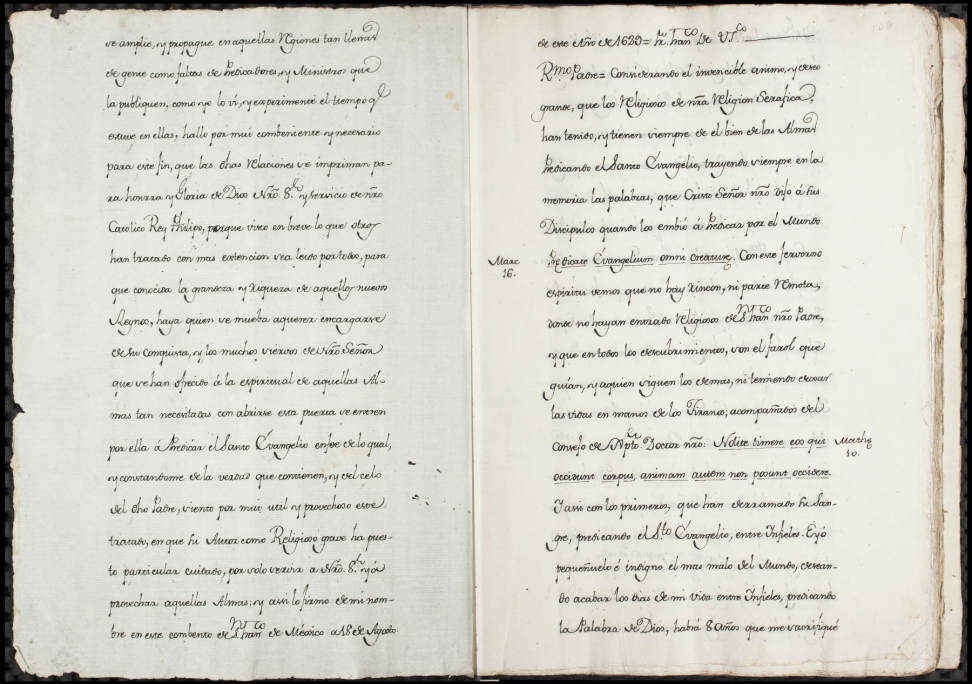 se amplie, y propague, en aquellas Regiones tan llenas
de gente como faltas de Predicadores, y Ministros que
la publiquen, como yo lo vi, y experimenté el tiempo q.e
estuve en ellas, hallo por mui combeniente y necesario
para este fin, que las dhas Relaciones se impriman pa-
ra honrra y Gloria de Dios Nrô. S.r y servicio de nrô
Catolico Rey Philipo, porque visto en breve lo que otros
han tratado con mas extencion sea leido por todos, para
que conocida la grandeza y riqueza de aquellos nuevos
Reynos, haya quien se mueba aquerer encargarse
de su conquista, y los muchos siervos de Nrô Señor
que se han ofrecido á la espiritual de aquellas Al-
mas tan necesitadas con abrirse esta puerta se entren
por ella á Predicár el Santo Evangelio enfee de lo qual,
y constandome de la verdad que contienen, y del celo
del dho Padre, siento por mui util y provechoso este
tratado, en que su Autor como Religioso grave ha pues-
to particular cuidado, por solo servir a Nrô. S.r y á
provechar aquellas Almas; y assi lo firmo de mi nom-
bre en este combento de S.n Fran.co de México a 18 de Agosto
de este Año de 1629 = Fr. Fran.co De
R.mo Padre = Considerando el invencible animo, y deseo
grande, que los Religiosos de nrâ Religion Serafica,
han tenido, y tienen siempre de el bien de las Almas
Predicando el Santo Evangelio, trayendo siempre en la
memoria las palabras, que Cristo Señor nrô dijo á sus
Discipulos quando los embió á Predicar por el Mundo
Marc
16.
Predicate Evangelium omni creaturę. Con este fervoroso
espiritu vemos que no hay rincon, ni parte remota,
donde no hayan entrado Religiosos de N. S. Fran.co nrô Padre,
y que en todos los descubrimientos, son el farol que
guían, y aquien siguen los demas, ni temiendo dexar
las vidas en manos de los Tiranos; acompañados del
Consejo de Npto. Doctor nrô: Nolite timere eos qui
Mathę
10.
occidunt corpus, animam autem non posunt occidere.
Y assi con los primeros, que han derramado su San-
gre, predicando el S.to Evangelio, entre Infieles. E yó
pequeñuelo é indigno el mas malo del Mundo, desean-
do acabar los dias de mi vida entre Infieles, predicando
la Palabra de Dios, habrá 8 años que me sacrifiqué